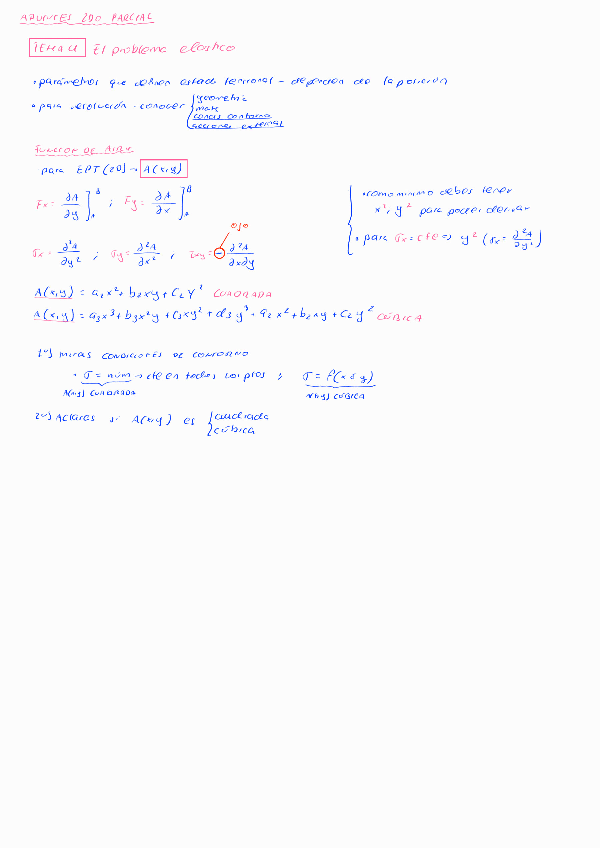 APUNTES 2DO PARCIAL
TEMA 4 El problema elástico
• parámetros que definen estado tensional - dependen de la posición
• para resolución - conocer { geometría
mat
conds contorno
acciones externas
FUNCIÓN DE AIRY
para EPT (2D) → A(x,y)
Fx = ∂A/∂y ]ᴮ_A ; Fy = ∂A/∂x ]ᴮ_A
• como mínimo debes tener
x², y² para poder derivar
• para σx = cte => y² (σx = ∂²A/∂y²)
ojo
σx = ∂²A/∂y² ; σy = ∂²A/∂x² , τxy = - ∂²A/∂x∂y
A(x,y) = a₂x² + b₂xy + c₂y² CUADRADA
A(x,y) = a₃x³ + b₃x²y + c₃xy² + d₃y³ + a₂x² + b₂xy + c₂y² CÚBICA
1º) miras CONDICIONES DE CONTORNO
• σ = núm → cte en todos los ptos ; σ = f(x ó y)
A(x,y) CUADRADA A(x,y) CÚBICA
2º) ACLARAS si A(x,y) es { cuadrada
cúbica